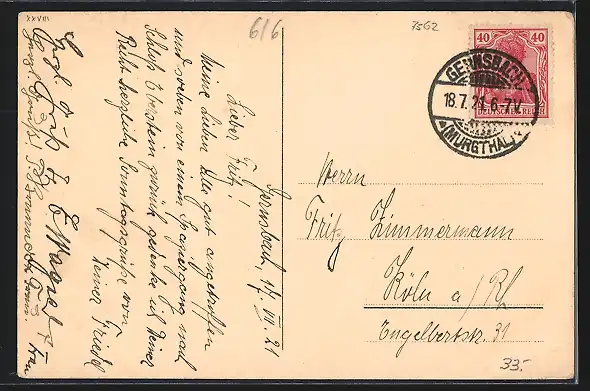 XXVIII
616
7562
40 40
DEUTSCHES REICH
GERNSBACH
18.7.21.6-7V.
(MURGTHAL)
Gernsbach, 17. VII. 21
Lieber Fritz!
Meine Lieben alle gut angetroffen
und soeben von einem Spaziergang nach
Schloß Eberstein zurück gedenke ich Deiner
Recht herzliche Sonntagsgrüße von
Deiner Friedel
E. Wagner + Frau
Herrn
Fritz Zimmermann
Köln a/Rh
Engelbertstr. 31
33.-